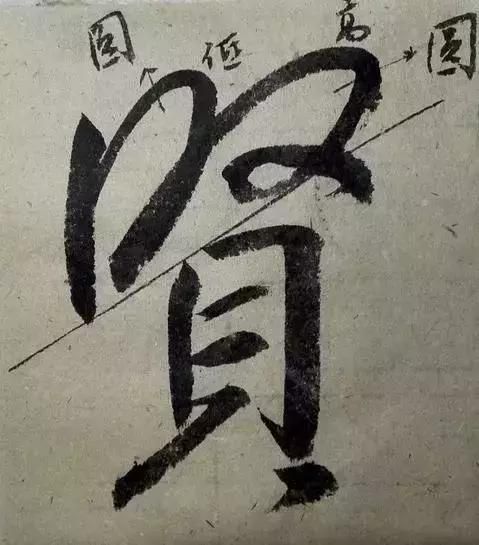 圆 低 高 圆
賢